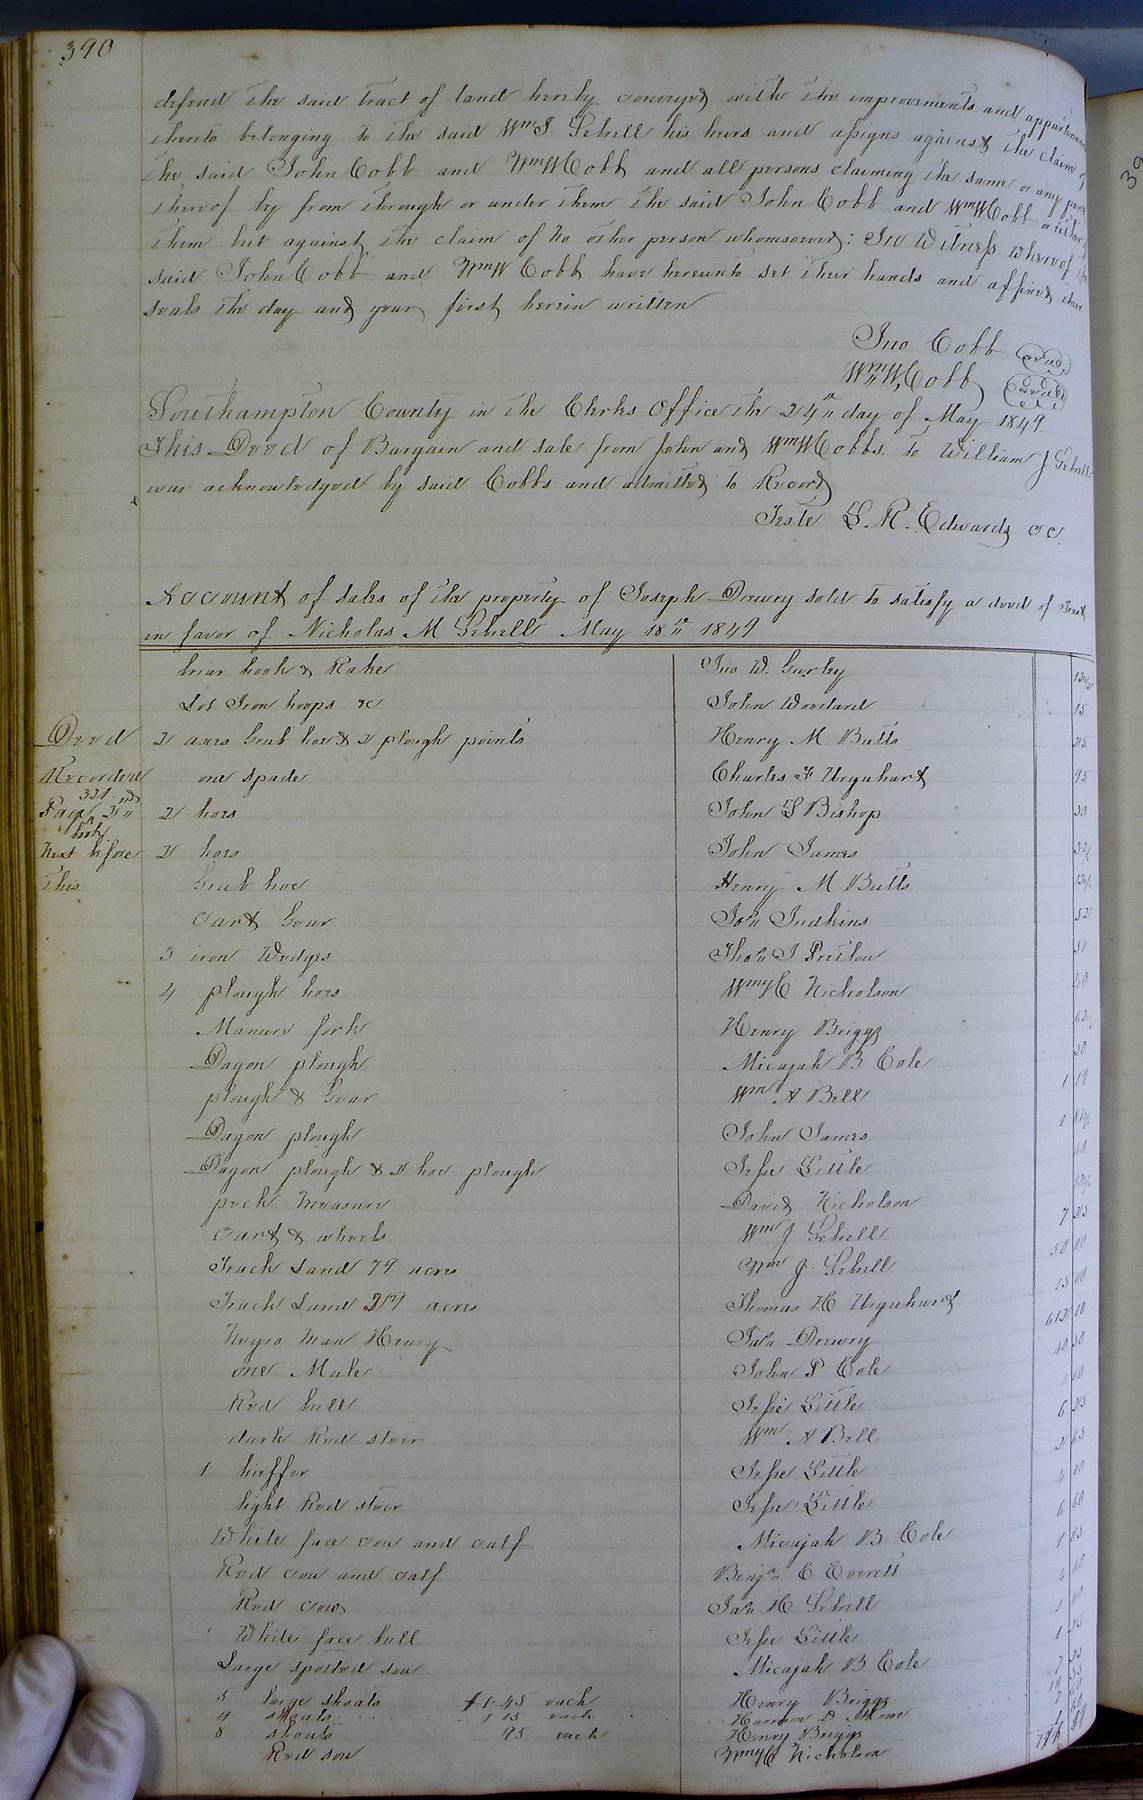 390
defend the said tract of land hereby conveyed with the improvements and
thereto belonging to the said Wm J. Sebrell his heirs and assigns against the claim of
the said John Cobb and Wm W Cobb and all persons claiming the same or any part
thereof by from through or under them the said John Cobb and Wm W Cobb or either of
them but against the claim of no other person whomsoever: In Witness whereof the
said John Cobb and Wm W Cobb have hereunto set their hands and affixed their
seals the day and year first herein written
Jno Cobb (seal)
Wm W. Cobb (seal)
Southampton County in the Clerks Office the 24th day of May 1849
This Deed of Bargain and sale from John and Wm W Cobbs to William J Sebrell
was acknowledged by said Cobbs and admitted to Record
Teste L. R. Edwards cc.
Account of sales of the property of Joseph Drewry sold to satisfy a deed of Trust
in favor of Nicholas M Sebrell May 18th 1849
briar hook & Rake Jno W. Gurley
Lot Iron hoops &c John Woodard 15
Deed 2 axes Grub hoe & 2 plough points Henry M Butts 25
Recorded one spade Charles F Urquhart 95
321
Page 2nd 2 hoes John S Bishop 30
book
Next before 2 hoes John James
this Grub hoe Henry M Butts
Cart Gear Jos Judkins 52
3 iron Wedges Thos J Pretlow 51
4 plough hoes Wm C Nicholson 40
Manure fork Henry Briggs
Dagon plough Micajah B Cole 50
plough & Gear Wm A Bell
Dagon plough John James
Dagon plough & 2 hoe plough Jesse Little
peck Measure David Nicholson
Cart & wheels Wm J Sebrell 7 25
Track Land 79 acres Wm J. Sebrell 50 00
Track Land acres Thomas H Urquhart 15 00
Negro Man Henry Jas Drewry 612 00
one Mule John P Cole
Red bull Jesse Little
dark Red steer Wm A Bell 6 25
1 heiffer Jesse Little 2 63
light Red steer Jesse Little 4 00
White face cow and calf Micajah B Cole 6 00
Red cow and calf Benjn C Everett
Red cow Jas H Sebrell
White face bull Jesse Little
Large spotted sow Micajah B Cole
5 large shoats $1.45 each Henry Briggs
4 shoats 1 15 each Harrison P Moore
8 shoats 95 each Henry Briggs
Red sow Wm C Nicholson